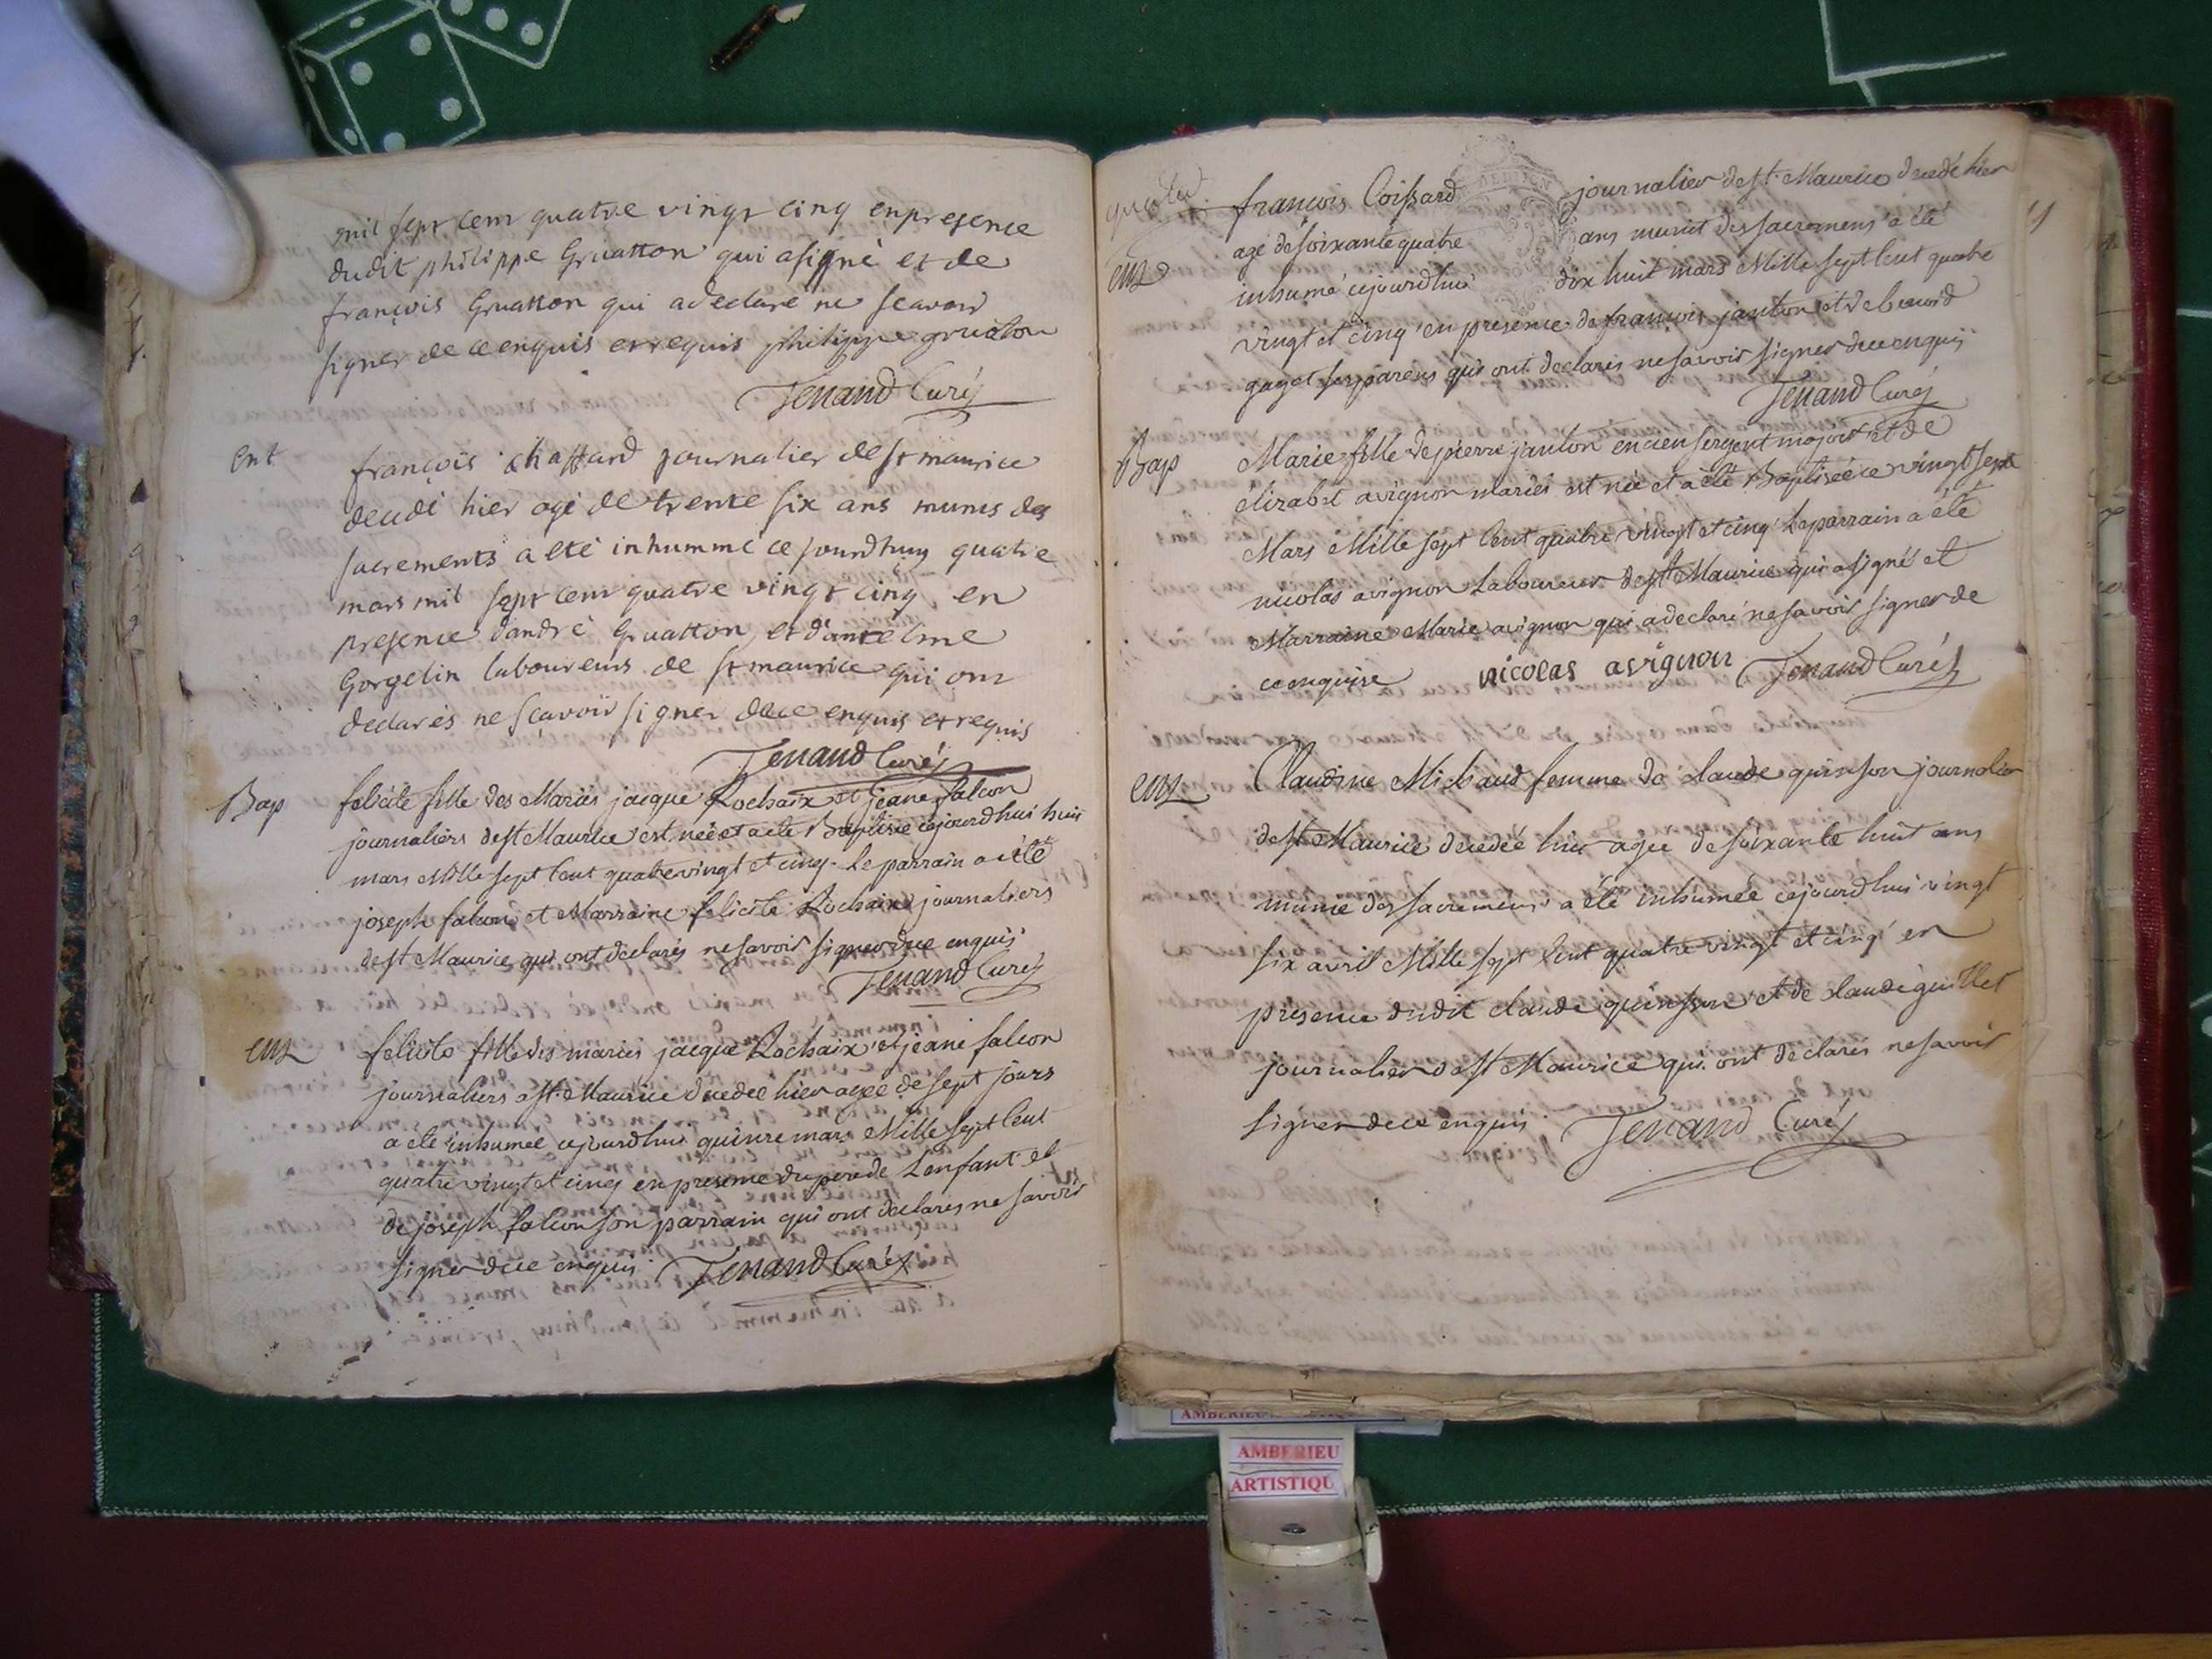 mil sept cent quatre vingt cinq en presence
dudit philippe Gruatton qui a signé et de
françois Gruatton qui a declaré ne scavoir
signer de ce enquis et requis philippe gruaton
Tenand Curé
Ent
françois chaffard journalier de st maurice
decedé hier agé de trente six ans munis des
sacrements a eté inhummé ce jourdhuy quatre
mars mil sept cent quatre vingt cinq en
presence d'andré Gruatton et d'antelme
Gorgelin laboureurs de st maurice qui ont
declarés ne sçavoir signer de ce enquis et requis
Tenand Curé
Bap
felicite fille des Mariés jacque Rochaix et jeane falcon
journaliers de st Maurice est née et a eté Baptisée cejourdhui huit
mars Mille sept Cent quatre vingt et cinq. Le parrain a eté
joseph falcon et Marraine felicite Rochaix journaliers
de st Maurice qui ont declarés ne savoir signer de ce enquis
Tenand Curé
felicite fille des mariés jacque Rochaix et jeane falcon
journaliers a st. Maurice decedée hier agée de sept jours
a eté inhumée cejourdhui quinze mars Mille sept Cent
quatre vingt et cinq en presence du pere de L'enfant et
de joseph falcon son parrain qui ont declarés ne savoir
signer de ce enquis. Tenand Curé
françois Coissard journalier de st. Maurice decedé hier
agé de soixante quatre ans munit des sacremens a eté
inhumé cejourdhui dix huit mars Mille sept Cent quatre
vingt et cinq en presence de francois janton et de benoid
gaget ses parens qui ont declarés ne savoir signer de ce enquis
Tenand Curé
Bap
Marie fille de pierre janton encien sergent major et de
elizabet avignon mariés est née et a eté Baptisée ce vingt sept
Mars Mille sept Cent quatre vingt et cinq Le parrain a eté
nicolas avignon Laboureur de st Maurice qui a signé et
Marraine Marie avignon qui a declaré ne savoir signer de
ce enquise nicolas avignon Tenand Curé
Claudine Michaud femme de claude quinson journalier
de st Maurice decedée hier agée de soixante huit ans
munie des sacremens a eté inhumée cejourdhui vingt
six avril Mille sept Cent quatre vingt et cinq en
presence dudit claude quinson et de claude guillet
journalier de st Maurice qui ont declarés ne savoir
signer de ce enquis. Tenand Curé
AMBERIEU
ARTISTIQU